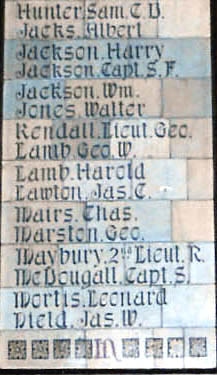 Hunter, Sam. C. D.
Jacks, Albert
Jackson, Harry
Jackson, Capt. S. F.
Jackson, Wm.
Jones, Walter
Kendall, Lieut. Geo.
Lamb, Geo. W.
Lamb, Harold
Lawton, Jas. C.
Mairs, Chas.
Marston, Geo.
Maybury, 2nd Lieut. R.
McDougall, Capt. S.
Morris, Leonard
Nield, Jas. W.
m